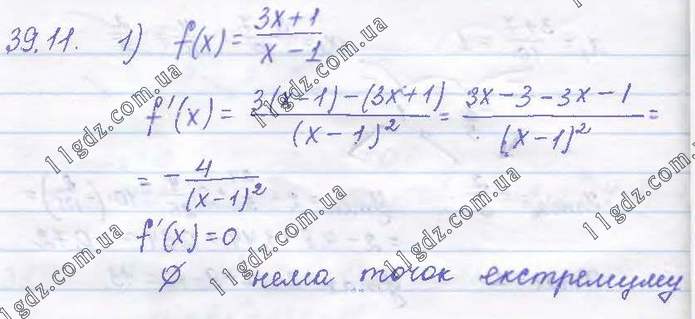 39.11. 1) f(x) = (3x+1)/(x-1)
f'(x) = (3(x-1)-(3x+1))/(x-1)² = (3x-3-3x-1)/(x-1)² =
= -4/(x-1)²
f'(x)=0
∅ нема точок екстремуму
11gdz.com.ua
11gdz.com.ua
11gdz.com.ua
11gdz.com.ua
11gdz.com.ua
11gdz.com.ua
11gdz.com.ua